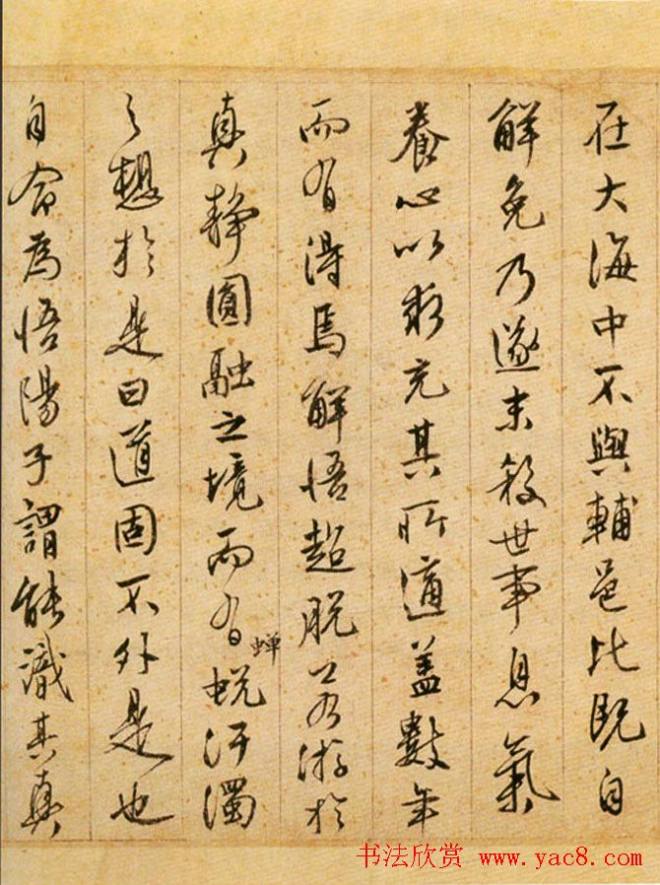 在大海中不與輔邑比既自
解免乃遂末殺世事息氣
養心以求充其所適蓋數年
而有得焉解悟超脫若游於
真靜圓融之境而有蟬蛻汙濁
之想於是曰道固不外是也
自命為悟陽子謂能識其真
书法欣赏 www.yac8.com